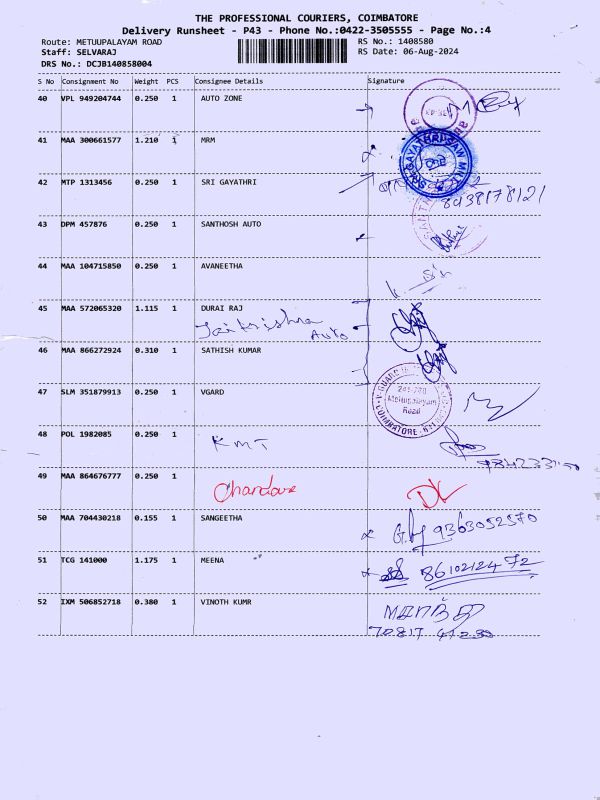 THE PROFESSIONAL COURIERS, COIMBATORE
Delivery Runsheet - P43 - Phone No.:0422-3505555 - Page No.:4
Route: METUUPALAYAM ROAD RS No.: 1408580
Staff: SELVARAJ RS Date: 06-Aug-2024
DRS No.: DCJB140858004
S No Consignment No Weight PCS Consignee Details Signature
40 VPL 949204744 0.250 1 AUTO ZONE
41 MAA 300661577 1.210 1 MRM
SRI GAYATHRI SAW MILL
42 MTP 1313456 0.250 1 SRI GAYATHRI
8438178121
43 DPM 457876 0.250 1 SANTHOSH AUTO
44 MAA 104715850 0.250 1 AVANEETHA
45 MAA 572065320 1.115 1 DURAI RAJ
Jaikrishna
Auto
46 MAA 866272924 0.310 1 SATHISH KUMAR
47 SLM 351879913 0.250 1 VGARD
V-GUARD
Mettupalayam
Road
COIMBATORE
48 POL 1982085 0.250 1
KMT
49 MAA 864676777 0.250 1
50 MAA 704430218 0.155 1 SANGEETHA
9363052570
51 TCG 141000 1.175 1 MEENA
8610212472
52 IXM 506852718 0.380 1 VINOTH KUMR
70817 41230